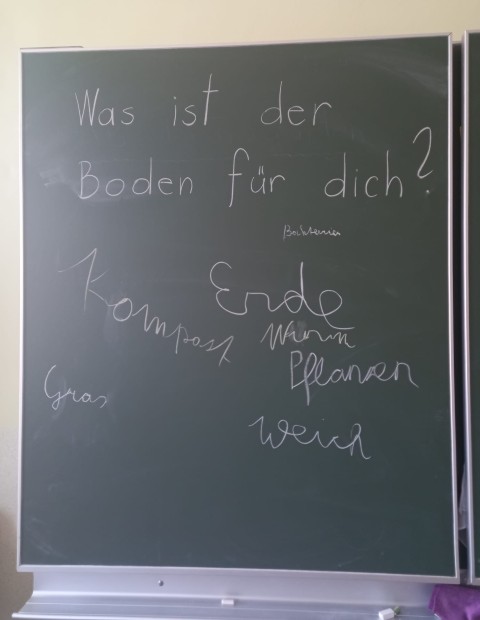 Was ist der
Boden für dich?
Bakterien
Kompost
Erde
Wurm
Pflanzen
Gras
weich